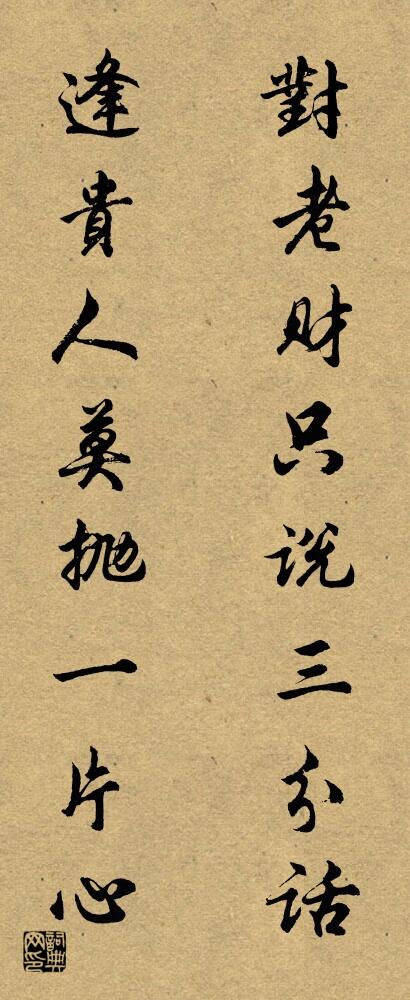 對老财只说三分话
逢貴人莫抛一片心
詞典网印